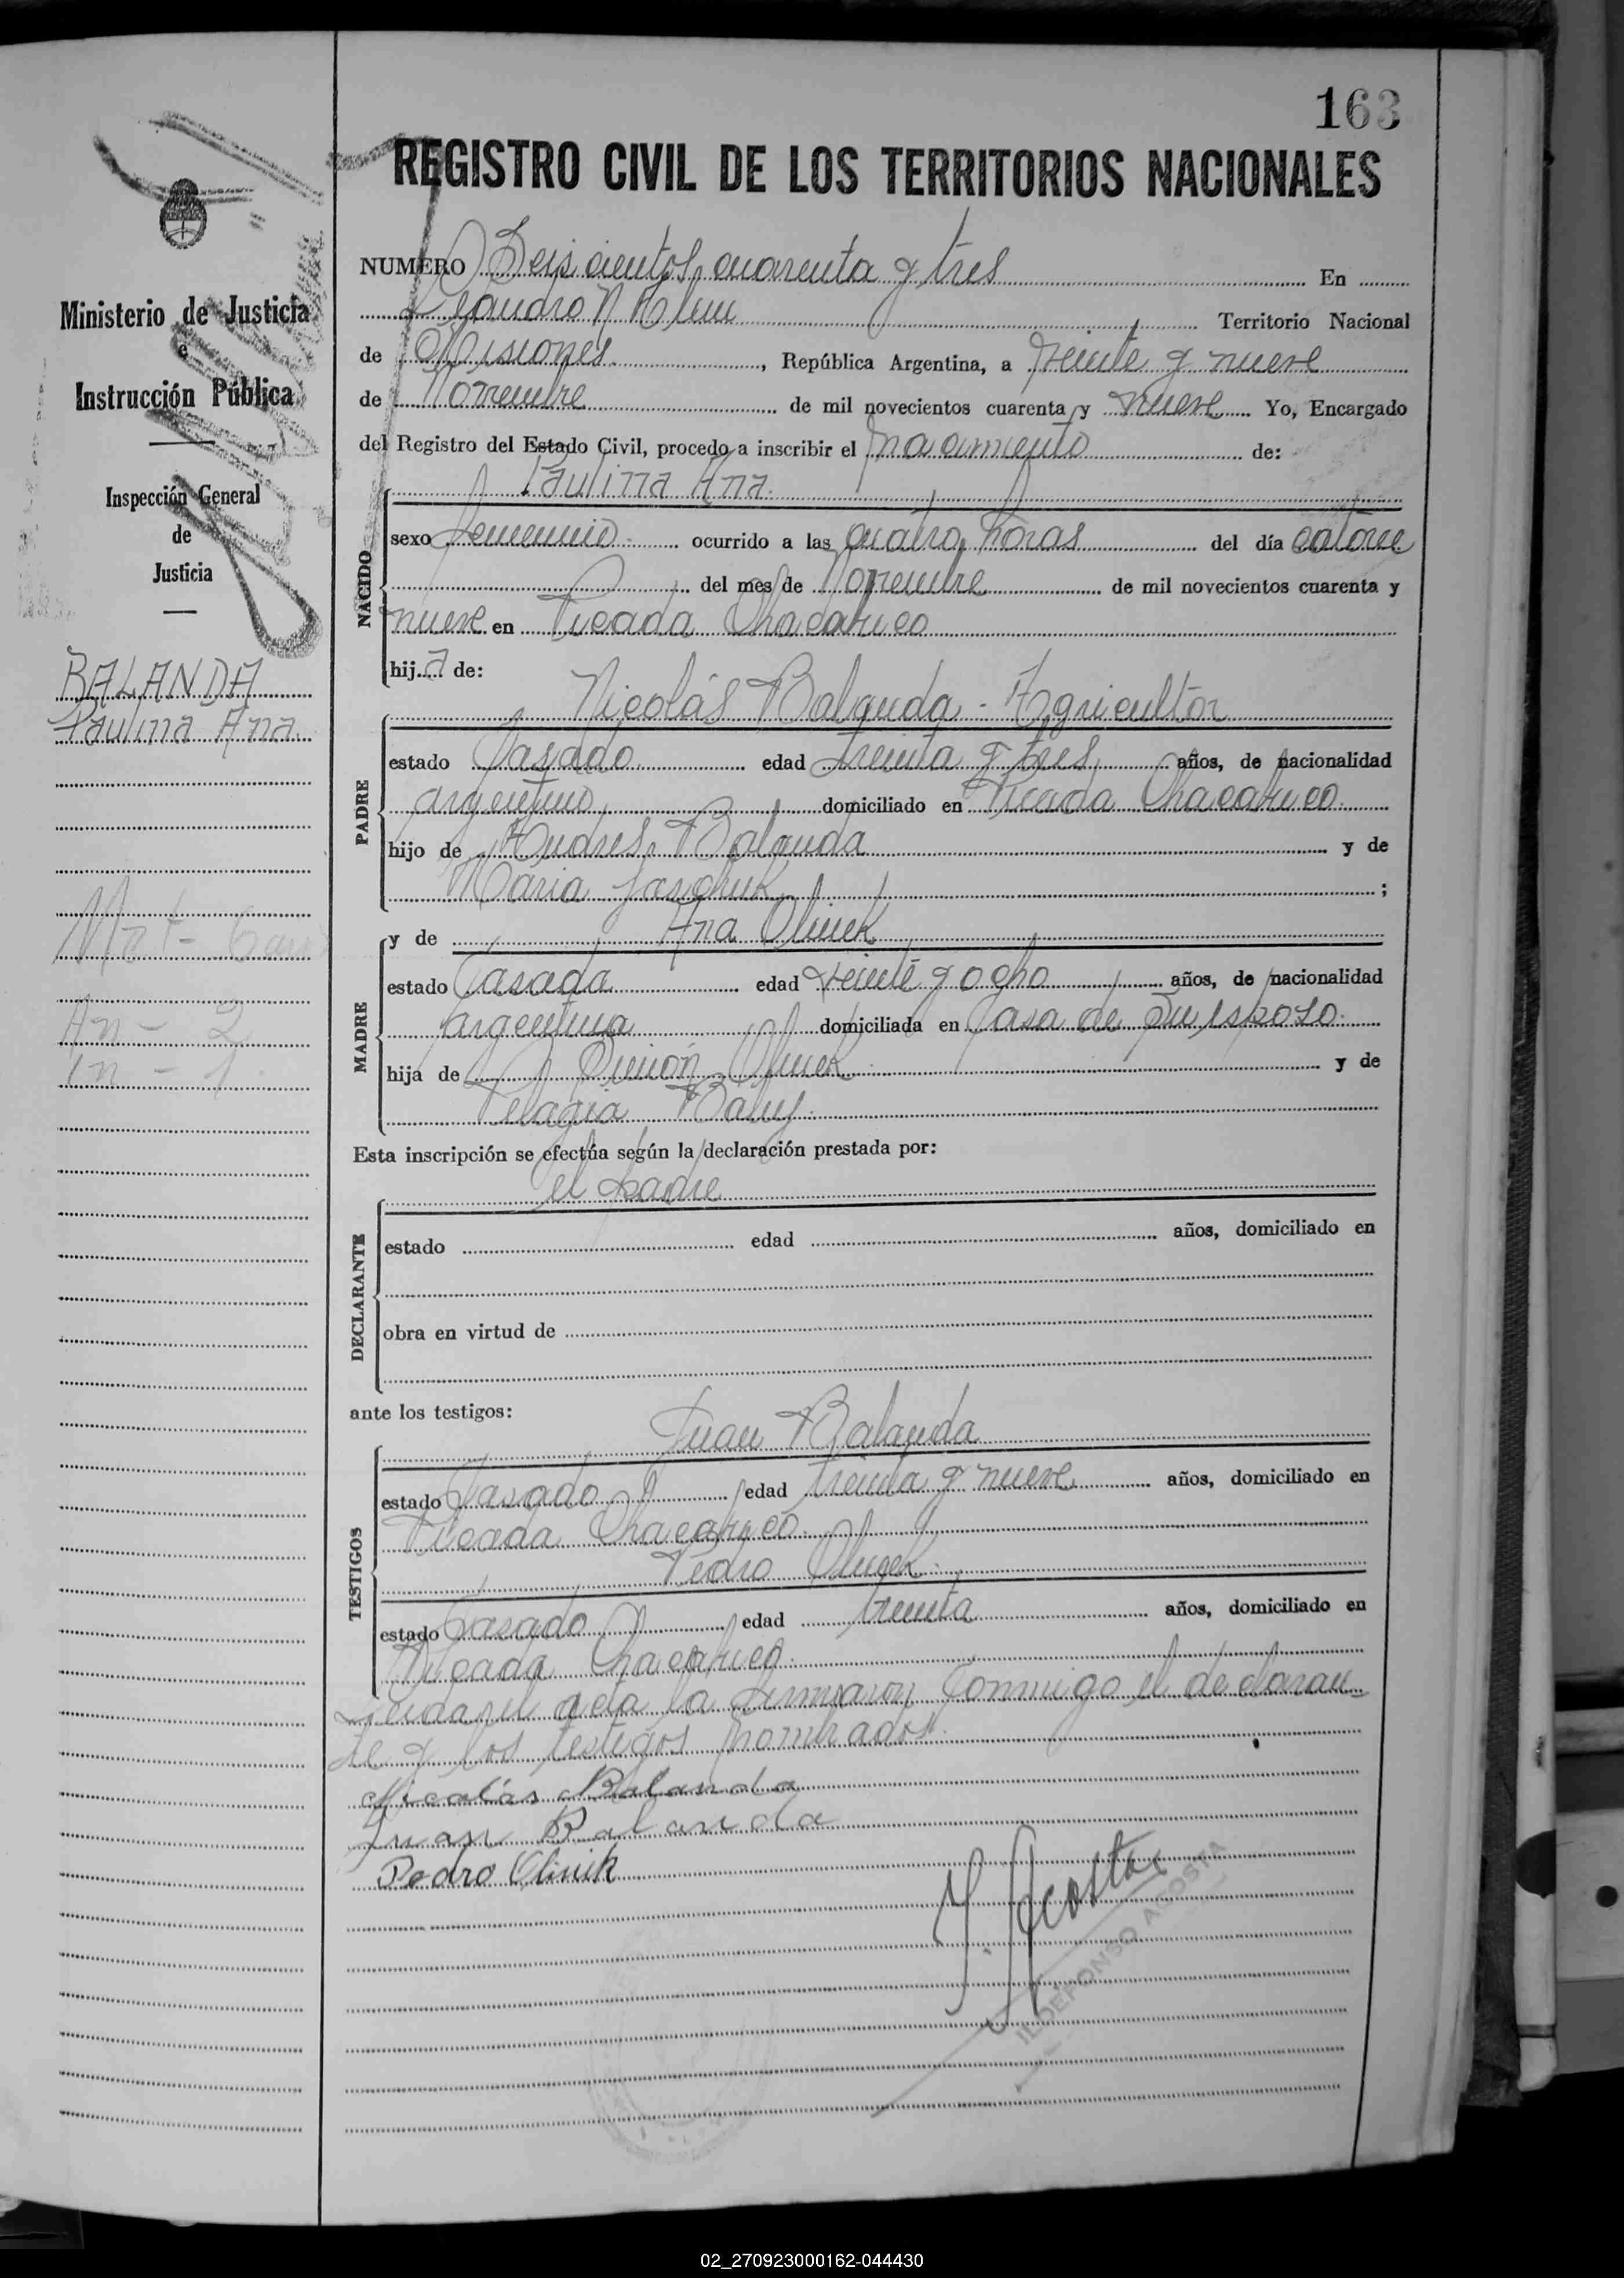 163
REGISTRO CIVIL DE LOS TERRITORIOS NACIONALES
NUMERO Seiscientos cuarenta y tres En
Leandro N Alem Territorio Nacional
de Misiones, República Argentina, a veinte y nueve
de Noviembre de mil novecientos cuarenta y nueve Yo, Encargado
del Registro del Estado Civil, procedo a inscribir el nacimiento de:
Paulina Ana
NACIDO
sexo femenino ocurrido a las cuatro horas del día catorce
del mes de Noviembre de mil novecientos cuarenta y
nueve en Picada Chacabuco
hija de:
PADRE
Nicolás Balanda - Agricultor
estado Casado edad treinta y tres años, de nacionalidad
argentino domiciliado en Picada Chacabuco
hijo de Andres Balanda y de
Maria ;
MADRE
y de Ana Olinek
estado Casada edad veinte y ocho años, de nacionalidad
argentina domiciliada en Casa de su esposo
hija de Simón Olinek y de
Pelagia
Esta inscripción se efectúa según la declaración prestada por:
el padre
DECLARANTE
estado edad años, domiciliado en
obra en virtud de
ante los testigos:
TESTIGOS
Juan Balanda
estado Casado edad treinta y nueve años, domiciliado en
Picada Chacabuco
Pedro Olinek
estado Casado edad treinta años, domiciliado en
Picada Chacabuco
Leida el acta la firmaron conmigo el declaran-
te y los testigos nombrados.
Nicolás Balanda
Juan Balanda
Pedro Olinik
I. Acosta
ILDEFONSO AGOSTA
Ministerio de Justicia
e
Instrucción Pública
Inspección General
de
Justicia
BALANDA
Paulina Ana
An - 2
In - 1
02_270923000162-044430